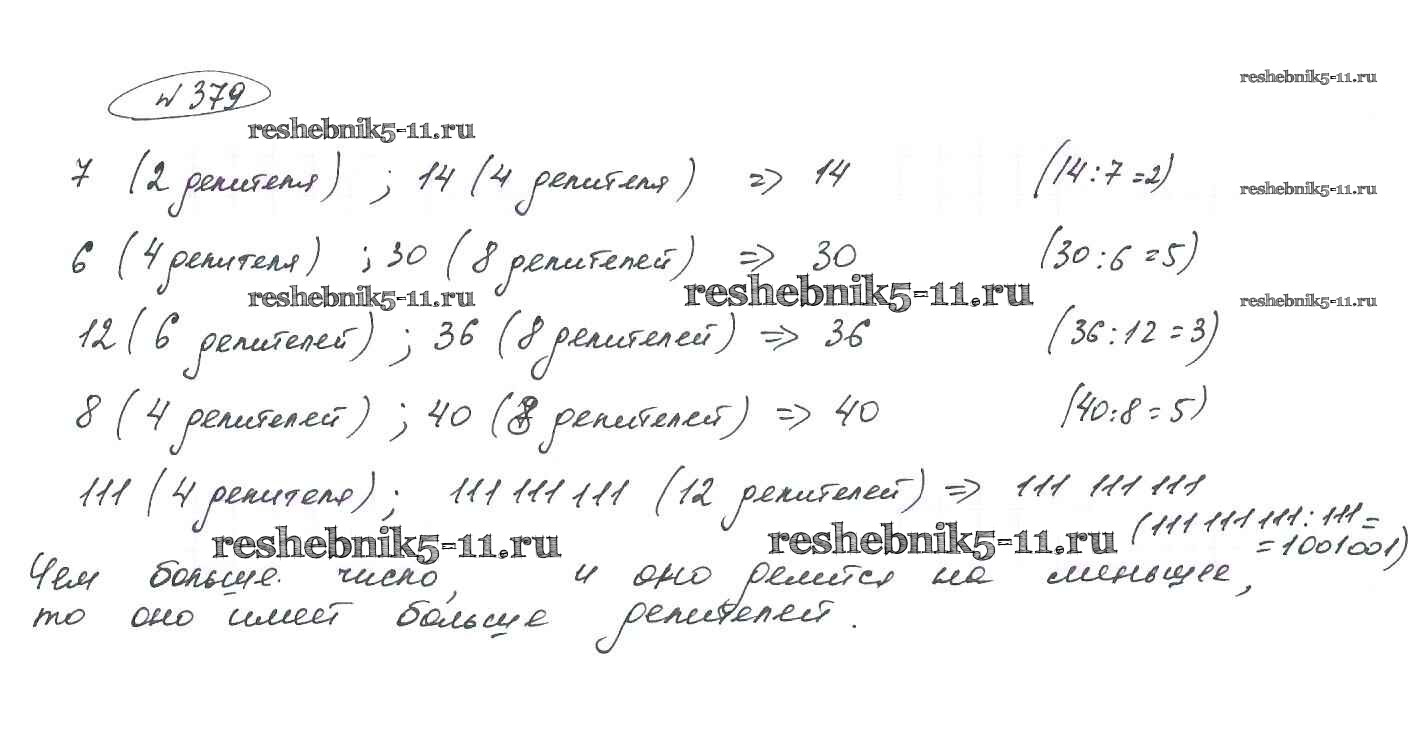 № 379
reshebnik5-11.ru
reshebnik5-11.ru
7 (2 делителя) ; 14 (4 делителя) => 14 (14:7=2)
reshebnik5-11.ru
6 (4 делителя) ; 30 (8 делителей) => 30 (30:6=5)
reshebnik5-11.ru reshebnik5-11.ru reshebnik5-11.ru
12 (6 делителей) ; 36 (8 делителей) => 36 (36:12=3)
8 (4 делителей) ; 40 (8 делителей) => 40 (40:8=5)
111 (4 делителя) ; 111 111 111 (12 делителей) => 111 111 111
(111 111 111:111=
=1001001)
reshebnik5-11.ru reshebnik5-11.ru
Чем больше число, и оно делится на меньшее,
то оно имеет больше делителей.